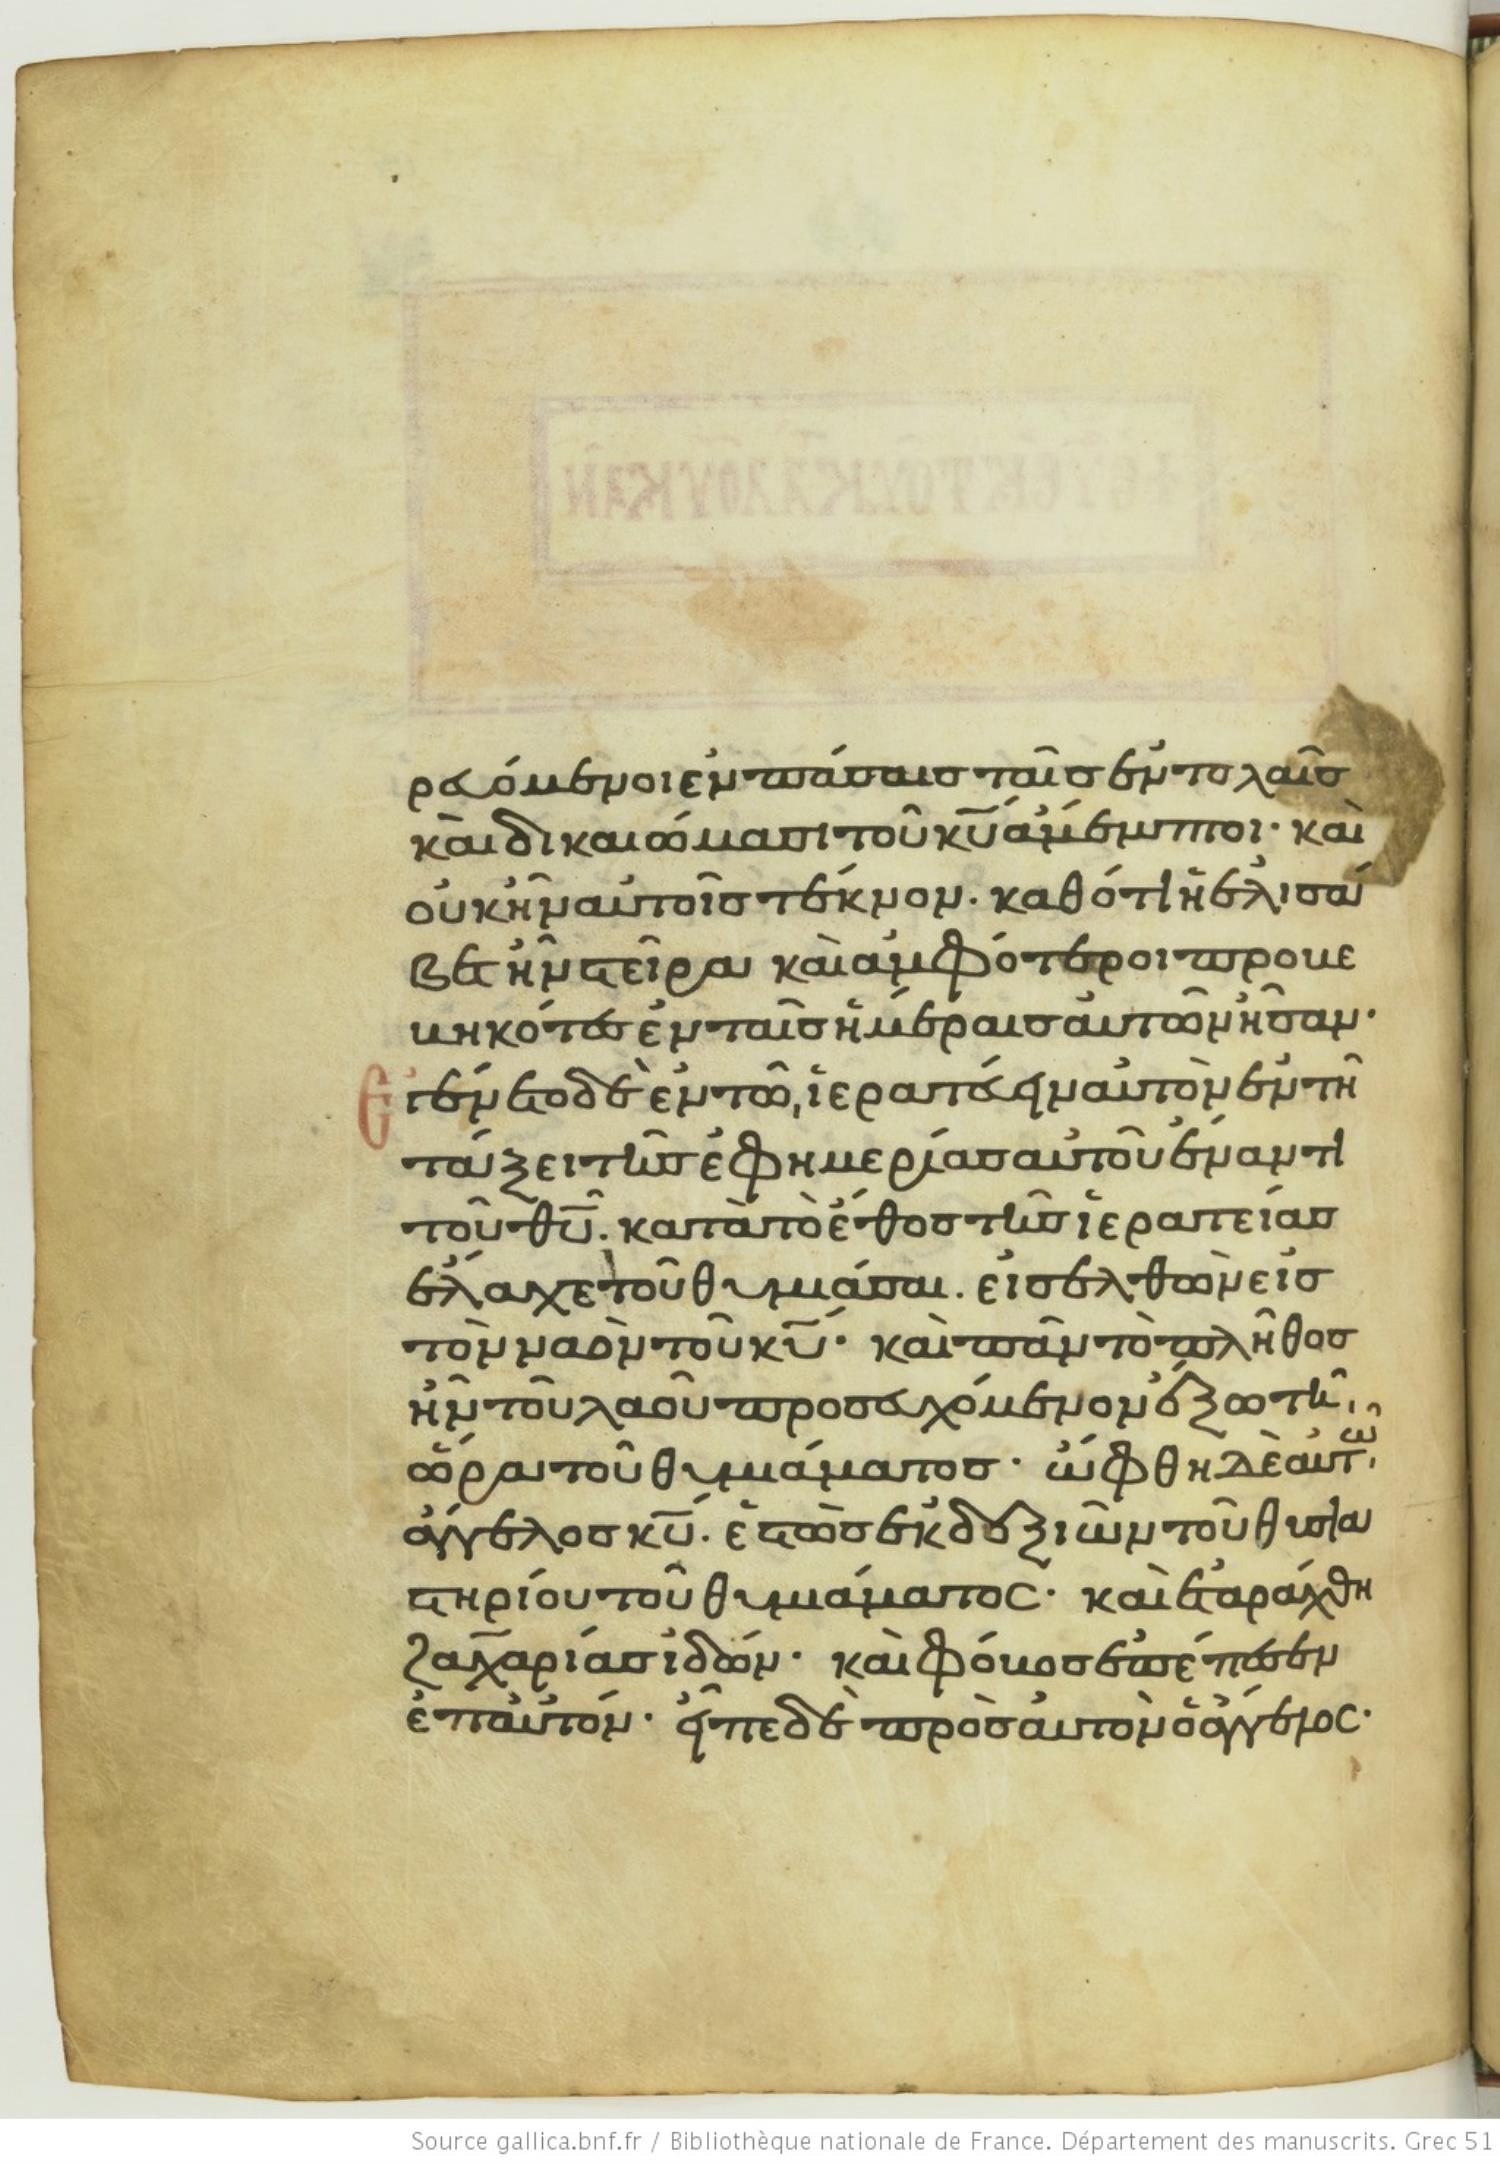 ρευόμενοι ἐν πάσαις ταῖς ἐντολαῖς
καὶ δικαιώμασι τοῦ κῡ ἄμεμπτοι· καὶ
οὐκ ἦν αὐτοῖς τέκνον. καθότι ἡ ἐλισά
βετ ἦν στεῖρα καὶ ἀμφότεροι προβε
βηκότες ἐν ταῖς ἡμέραις αὐτῶν ἦσαν·
Ἐγένετο δὲ ἐν τῶ, ἱερατεύειν αὐτὸν ἐν τῆ
τάξει τῆς ἐφημερίας αὐτοῦ ἔναντι
τοῦ θῡ. κατὰ τὸ ἔθος τῆς ἱερατείας
ἔλαχε τοῦ θυμιάσαι. εἰσελθὼν εἰς
τὸν ναὸν τοῦ κῡ· καὶ πᾶν τὸ πλῆθος
ἦν τοῦ λαοῦ προσευχόμενον ἔξω τῆ,
ὥρα τοῦ θυμιάματος· ὤφθη δὲ αὐτῶ,
ἄγγελος κῡ. ἑστὼς ἐκ δεξιῶν τοῦ θυσια
στηρίου τοῦ θυμιάματος· καὶ ἐταράχθη
ζαχαρίας ἰδών· καὶ φόβος ἐπέπεσεν
ἐπ αὐτόν· εἶπε δὲ πρὸς αὐτὸν ὁ ἄγγελος·
Source gallica.bnf.fr / Bibliothèque nationale de France. Département des manuscrits. Grec 51